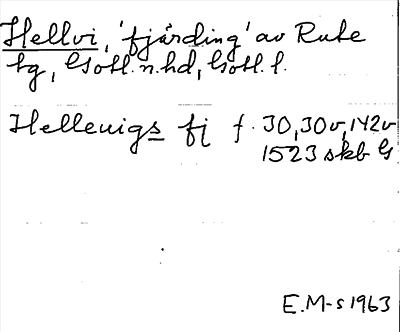 Hellvi, 'fjärding' av Rute
tg, Gotl. n. hd, Gotl. l.
Hellevigs fj f. 30, 30v, 142v
1523 skb G
E. M-s 1963